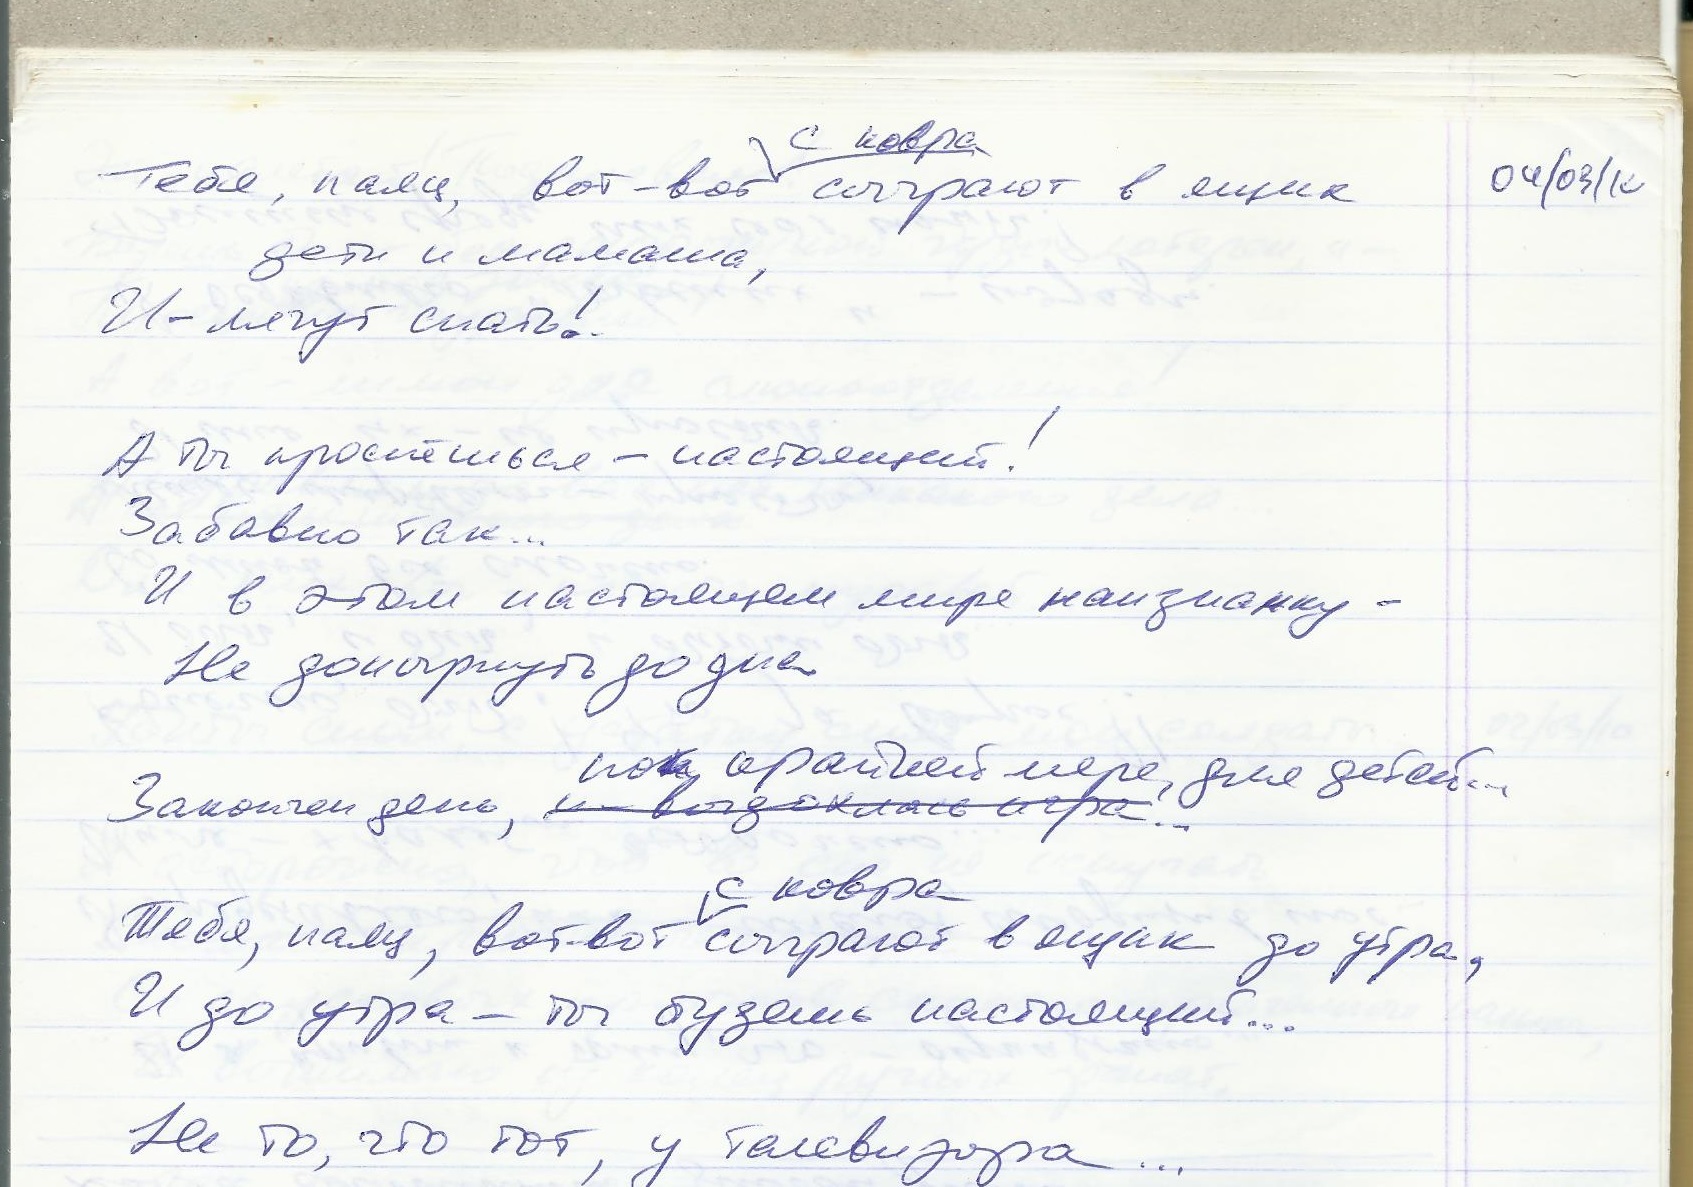 с ковра
Тебя, паяц, вот-вот сыграют в ящик
04/03/10
дети и мамаша,
И – лягут спать!
А ты проснёшься – настоящий!
Забавно так...
И в этом настоящем мире наизнанку –
Не донырнуть до дна
по крайней мере, для детей...
Закончен день, и – выдохлась игра!..
с ковра
Тебя, паяц, вот-вот сыграют в ящик до утра,
И до утра – ты будешь настоящий...
Не то, что тот, у телевизора...